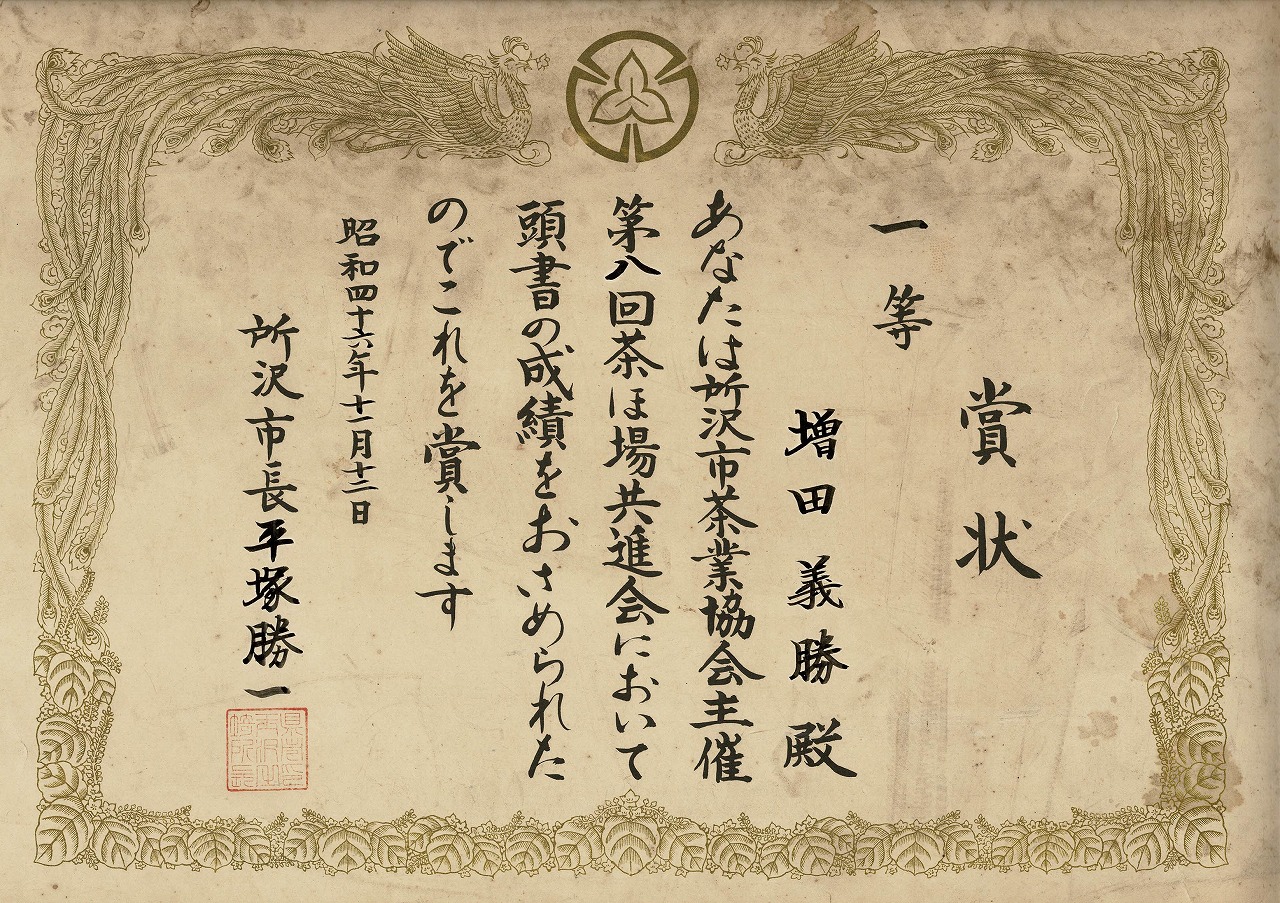 賞状
一等
増田義勝殿
あなたは所沢市茶業協会主催
第八回茶ほ場共進会において
頭書の成績をおさめられた
のでこれを賞します
昭和四十六年十一月十二日
所沢市長平塚勝一